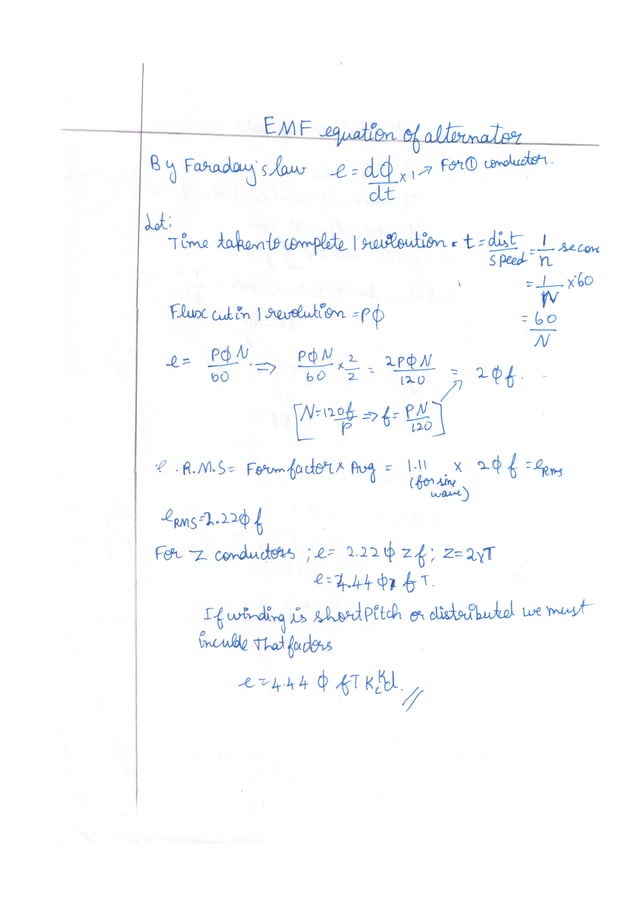 EMF equation of alternator
By Faraday's law e = dϕ/dt × 1 → For ① conductor.
Let:
Time taken to complete 1 reviloution = t = dist/speed = 1/n secon
= 1/N × 60
Flux cut in 1 revolution = Pϕ
= 60/N
e = PϕN/60 ⇒ PϕN/60 × 2/2 = 2PϕN/120 = 2ϕf.
[N = 120f/P ⇒ f = PN/120]
R.M.S = Form factor × Avg = 1.11 × 2ϕf = eRms
(for sine
wave)
eRMS = 2.22ϕf
For Z conductors ; e = 2.22 ϕ Z f ; Z = 2×T
e = 4.44 ϕ f T.
If winding is short pitch or distributed we must
inculde that factors
e = 4.44 ϕ f T Kc Kd. //